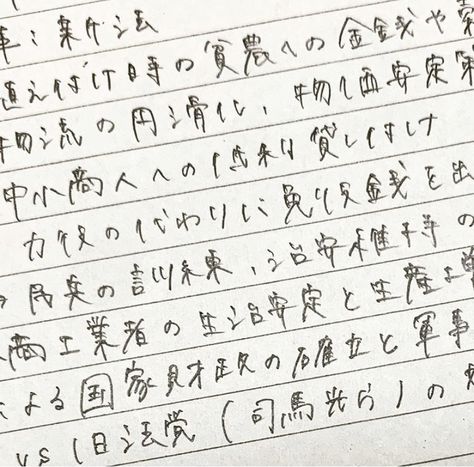 事：青苗法
植え付け時の貧農への金銭や穀
物流の円滑化、物価安定策
中小商人への低利貸し付け
力役の代わりに免役銭を出
民兵の訓練、治安維持の
商工業者の生活安定と生産
による国家財政の確立と軍事
vs 旧法党（司馬光ら）の